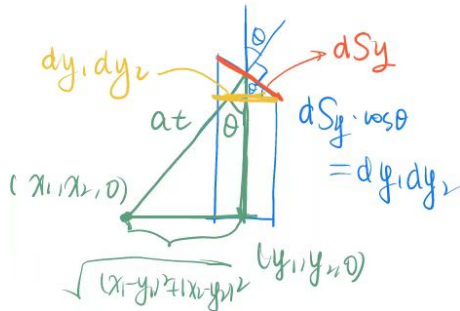 θ
dSy
dy₁dy₂
θ
at
θ
dSy·cosθ
= dy₁dy₂
(x₁,x₂,0)
(y₁,y₂,0)
√(x₁-y₁)²+(x₂-y₂)²